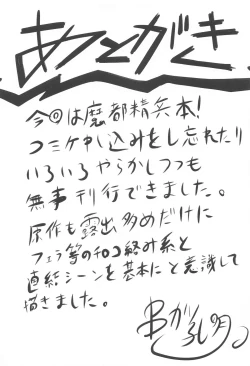 あとがき
今回は魔都精兵本!
コミケ申し込みをし忘れたり
いろいろやらかしつつも
無事刊行できました。
原作も露出多めだけに
フェラ等の和コ絡み系と
直結シーンを基本にと意識して
描きました。